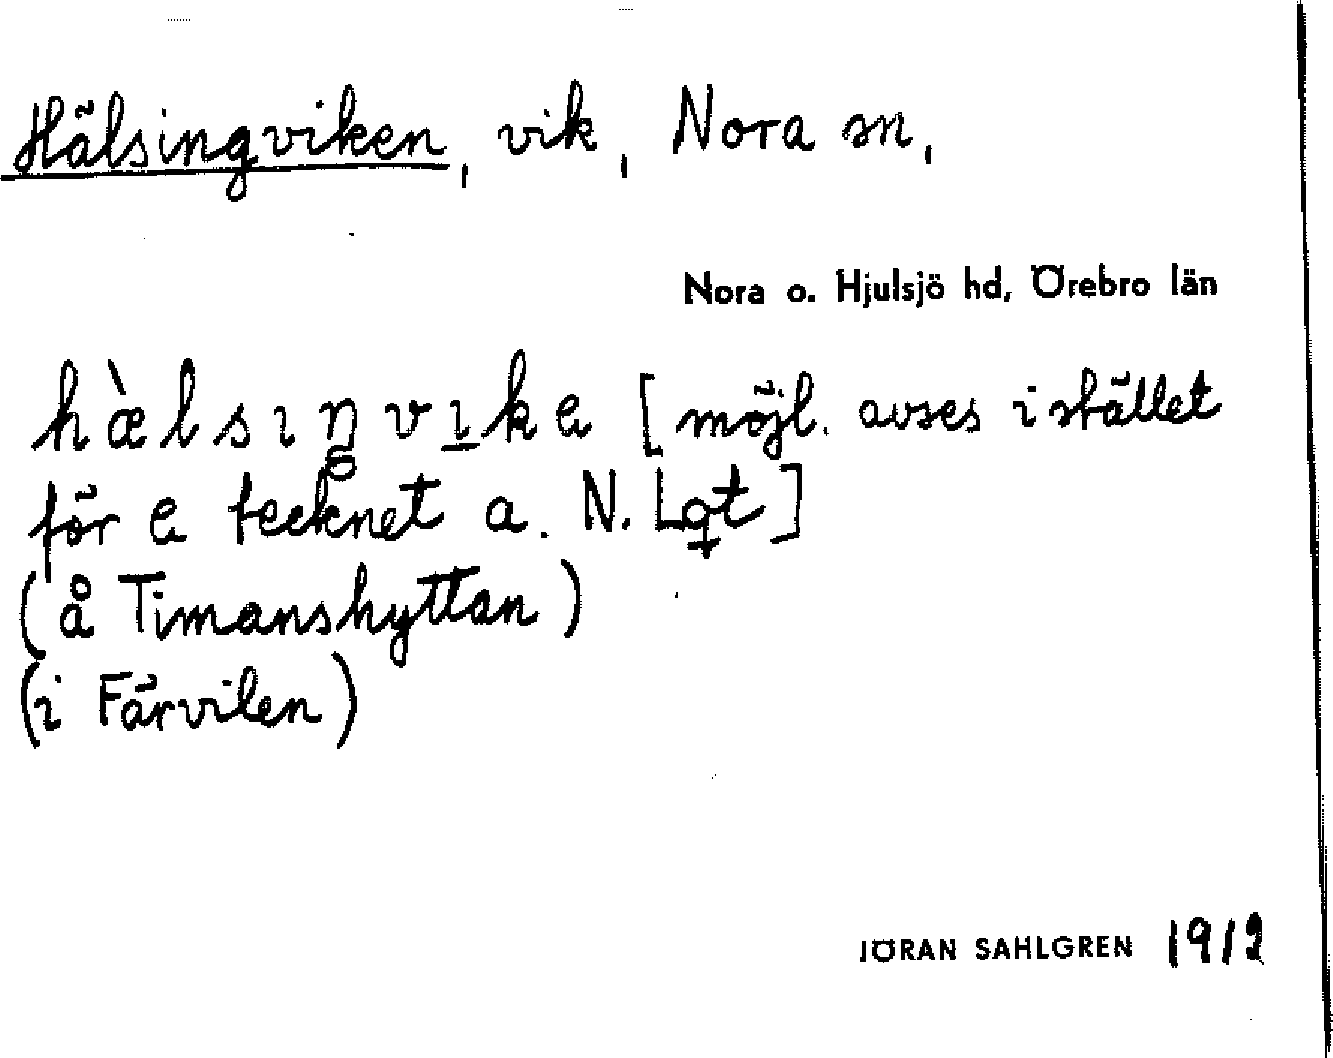 Hälsingviken, vik, Nora sn,
Nora o. Hjulsjö hd, Örebro län
hæ̀lsıŋvı̲ka [möjl. avses i stället
för a tecknet a. N. Lqt]
(å Timanshyttan)
(i Fårvilen)
JÖRAN SAHLGREN 1912